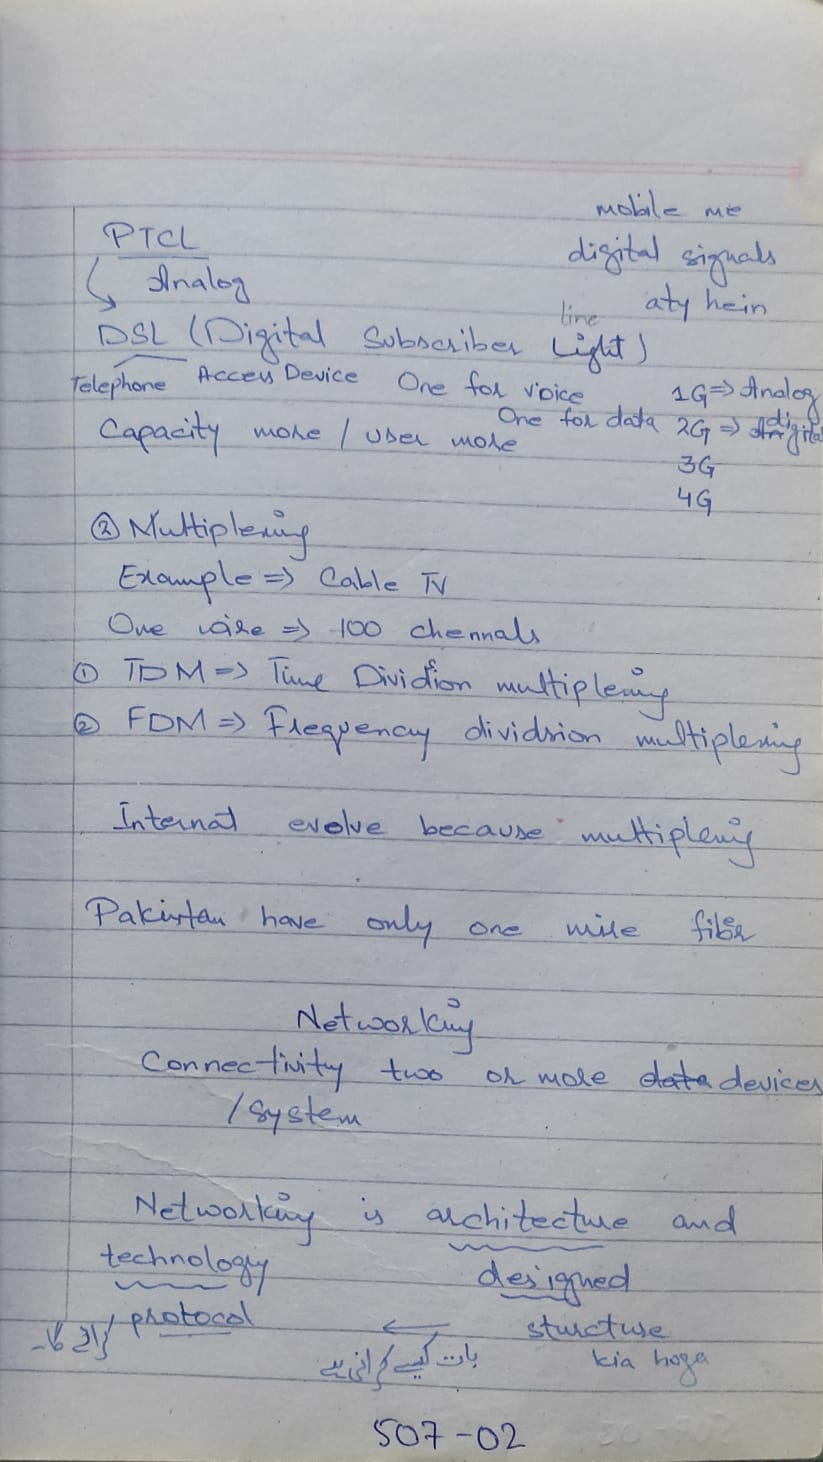 mobile me
digital signals
aty hein
PTCL
Analog
line
DSL (Digital Subscriber Light)
Telephone Access Device One for voice
One for data
1G => Analog
2G => digital
3G
4G
Capacity more / user more
② Multiplexing
Example => Cable TV
One wire => 100 chennals
① TDM => Time Dividion multiplexing
② FDM => Frequency dividsion multiplexing
Internat evolve because multiplexig
Pakistan have only one mile fiber
Networking
Connectivity two or more data devices
/ System
Networking is architecture and
technology designed
protocol sturcture
kia hoga
بات کیسے کرانی ہے
507-02